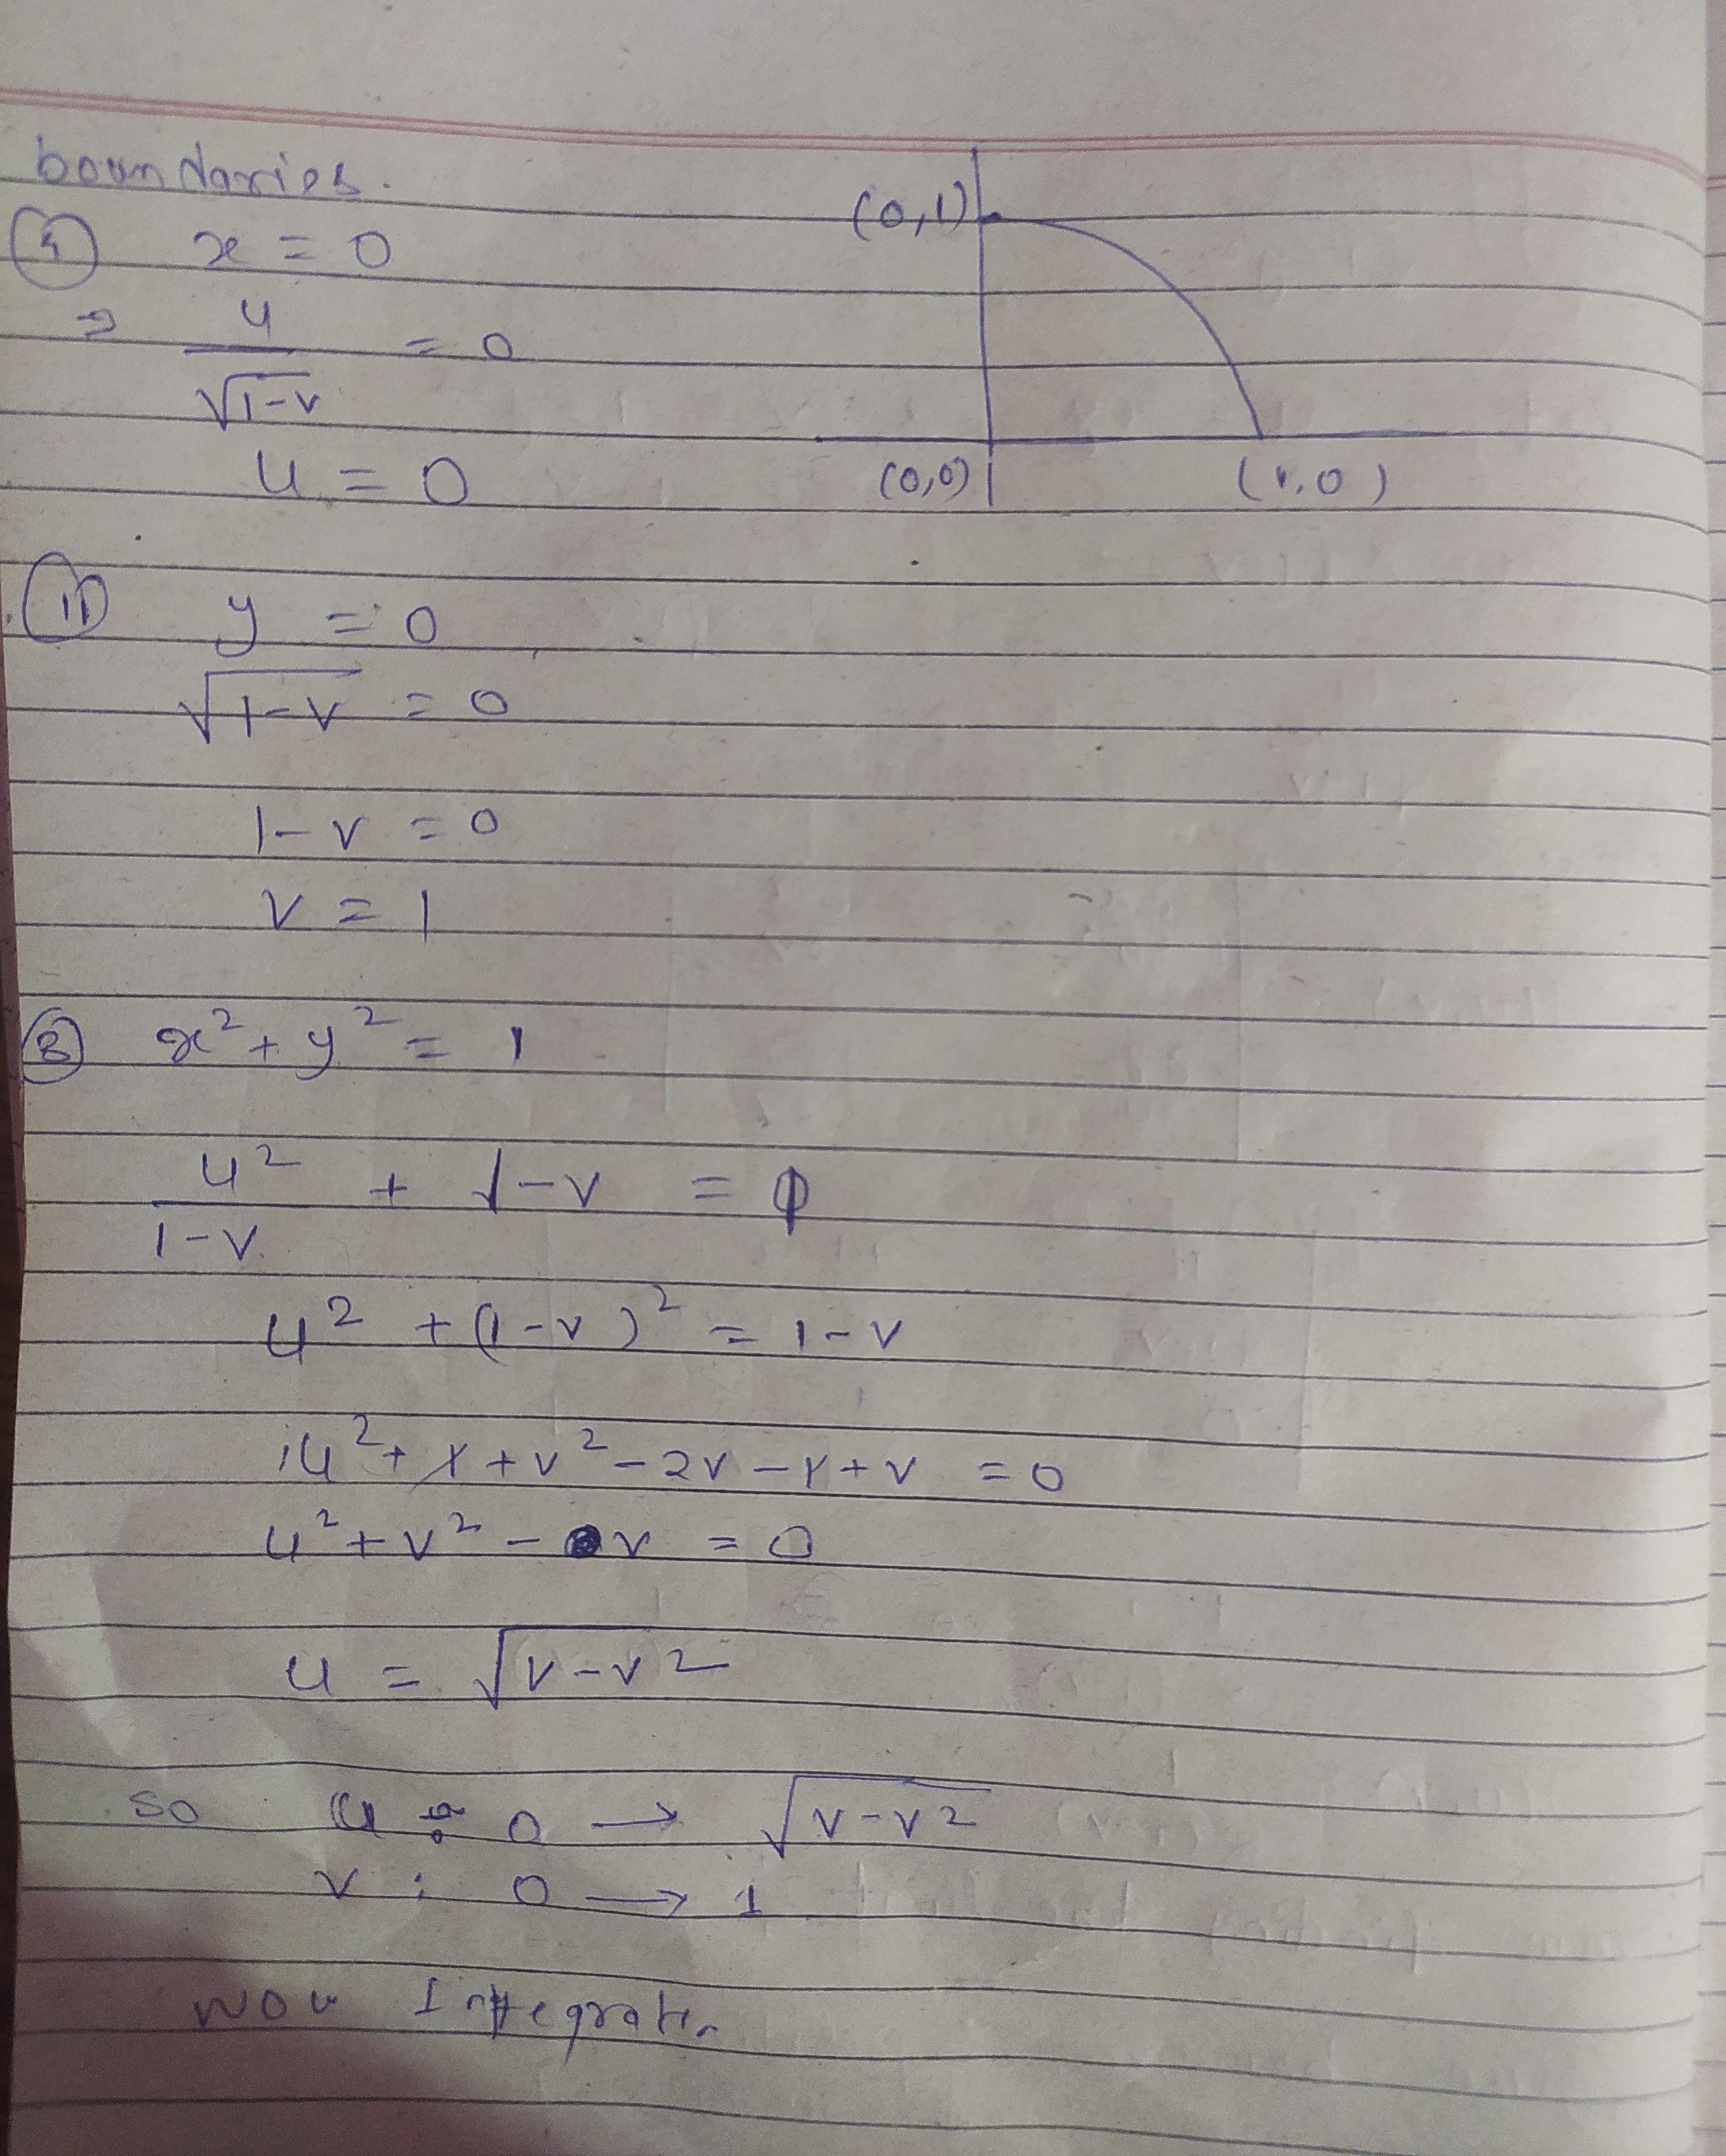 boundaries.
(0,1)
① x = 0
⇒ u/√(1-v) = 0
u = 0
(0,0) (1,0)
(ii) y = 0
√(1-v) = 0
1-v = 0
v = 1
③ x² + y² = 1
u²/(1-v) + 1-v = 1
u² + (1-v)² = 1-v
u² + 1 + v² - 2v - 1 + v = 0
u² + v² - v = 0
u = √(v-v²)
so u : 0 → √(v-v²)
v : 0 → 1
Now Integrate